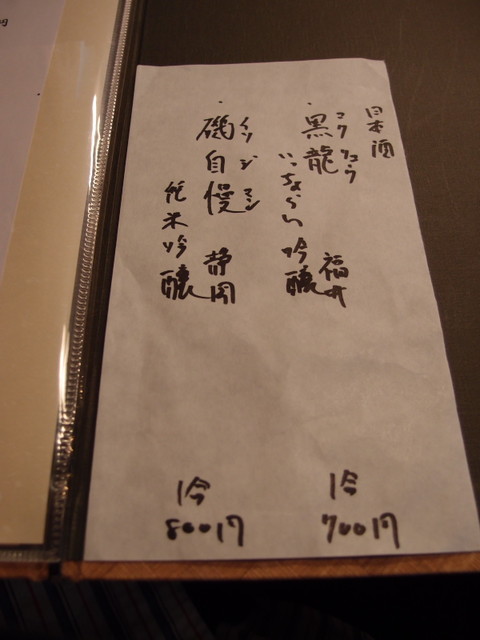 日本酒
・黒龍 コクリュウ
いっちょらい吟醸 福井
1合
700円
・磯自慢 イソジマン
純米吟醸 静岡
1合
800円